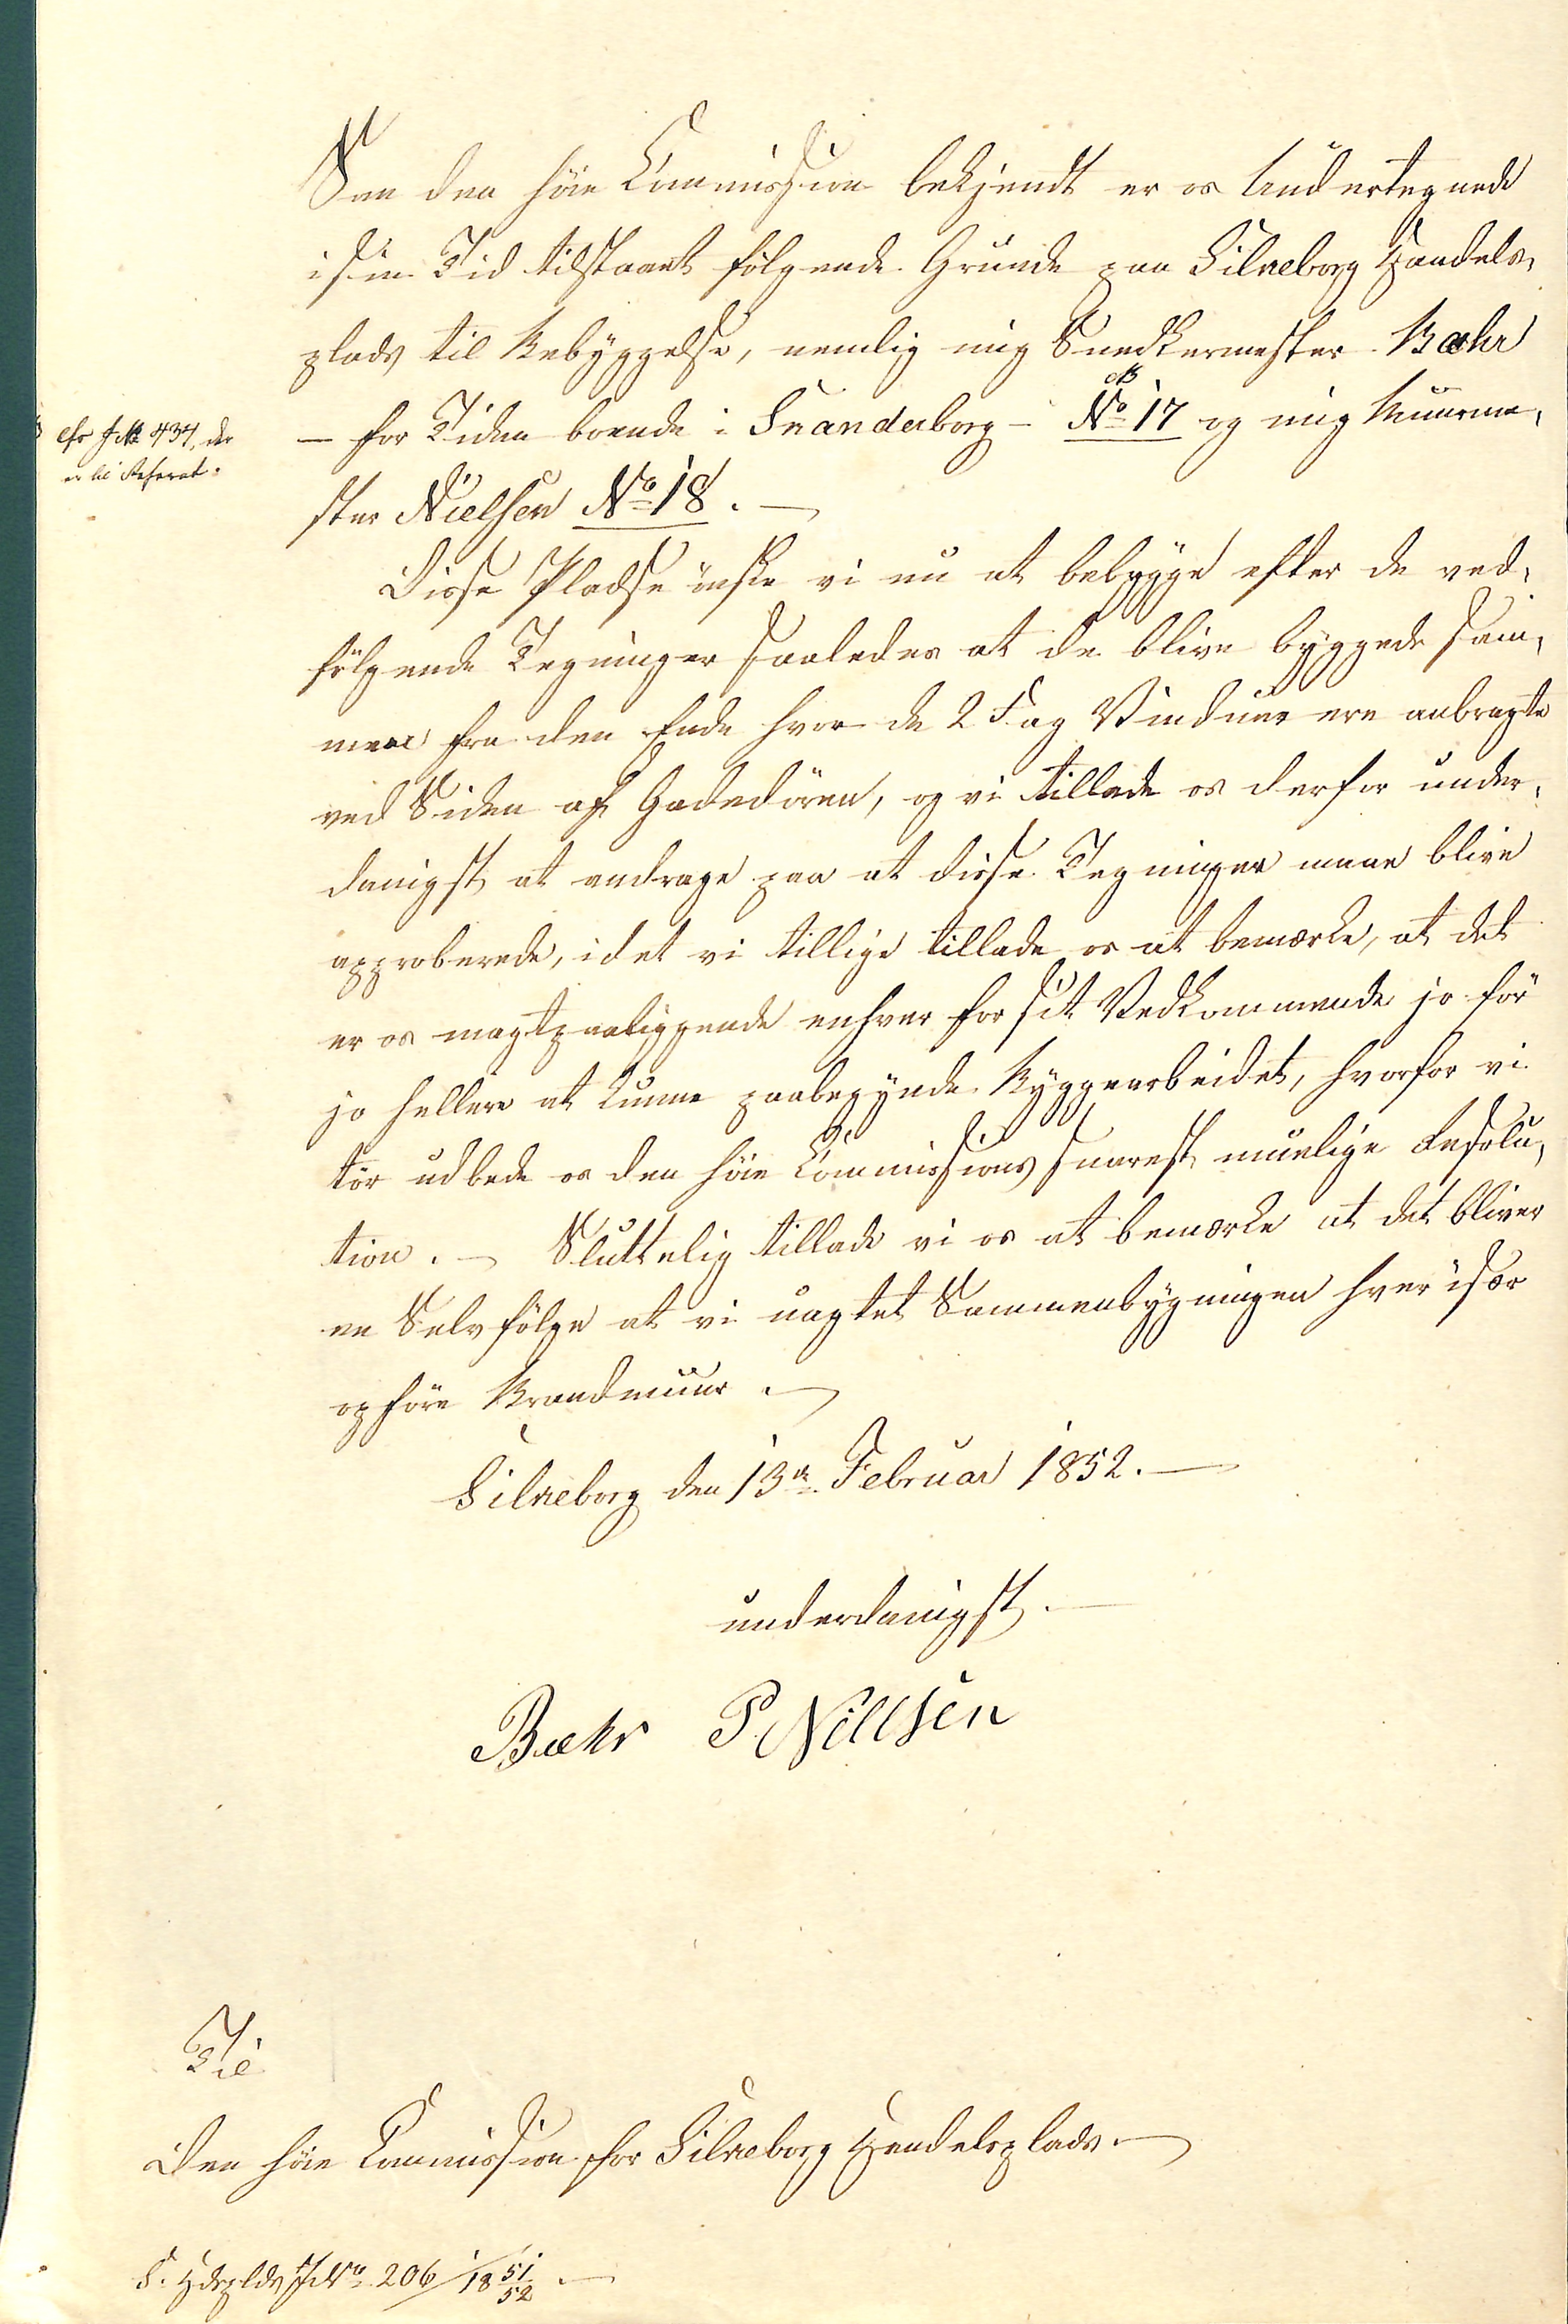 Som den höie Commission bekjendt er os Undertegnede
i sin Tid tilstaaet fölgende Grunde paa Silkeborg Handels-
plads til Bebyggelse, nemlig mig Snedkermester Bæhr
— for Tiden boende i Skanderborg — No 17 og mig Muurme-
cfr J No 434, der
er til Referat.
ster Nielsen No 18. —
Disse Pladse önske vi nu at bebygge efter de ved-
fölgende Tegninger saaledes at de blive byggede sam-
men fra den Ende hvor de 2 Fag Vinduer ere anbragte
ved Siden af Gadedören, og vi tillade os derfor under-
danigst at andrage paa at disse Tegninger maae blive
approberede, idet vi tillige tillade os at bemærke, at det
er os magtpaaliggende enhver for sit Vedkommende jo för
jo hellere at kunne paabegynde Byggearbeidet, hvorfor vi
tör udbede os den höie Commissions snarest muelige Resolu-
tion. — Sluttelig tillade vi os at bemærke at det bliver
en Selvfölge at vi uagtet Sammenbygningen hver især
opföre Brandmuur. —
Silkeborg den 13de Februar 1852. —
underdanigst.
Bæhr P. Nillsen
Til
Den höie Commission for Silkeborg Handelsplads. —
S. Hdsplds J No 206/18 51/52. —